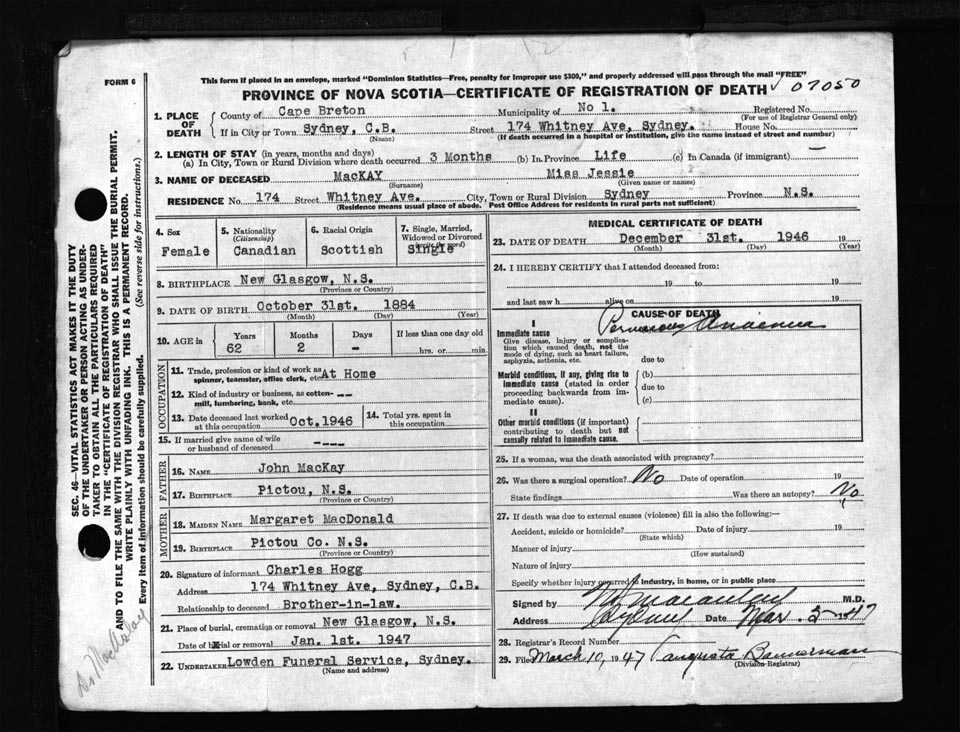 FORM 6
This form if placed in an envelope, marked "Dominion Statistics—Free, penalty for improper use $300," and properly addressed will pass through the mail "FREE"
PROVINCE OF NOVA SCOTIA—CERTIFICATE OF REGISTRATION OF DEATH 07050
1. PLACE OF DEATH
County of Cape Breton Municipality of No 1. Registered No.
(For use of Registrar General only)
If in City or Town Sydney, C.B. Street 174 Whitney Ave, Sydney. House No.
(Name) (If death occurred in a hospital or institution, give the name instead of street and number)
2. LENGTH OF STAY (in years, months and days)
(a) In City, Town or Rural Division where death occurred 3 Months (b) In Province Life (c) In Canada (if immigrant) —
3. NAME OF DECEASED MacKAY Miss Jessie
(Surname) (Given name or names)
RESIDENCE No. 174 Street Whitney Ave. City, Town or Rural Division Sydney Province N.S.
(Residence means usual place of abode. Post Office Address for residents in rural parts not sufficient)
4. Sex
Female
5. Nationality
(Citizenship)
Canadian
6. Racial Origin
Scottish
7. Single, Married,
Widowed or Divorced
(write the word)
Single
8. BIRTHPLACE New Glasgow, N.S.
(Province or Country)
9. DATE OF BIRTH October 31st. 1884
(Month) (Day) (Year)
10. AGE in
Years Months Days If less than one day old
62 2 - hrs. or min.
OCCUPATION
11. Trade, profession or kind of work as At Home
spinner, teamster, office clerk, etc.
12. Kind of industry or business, as cotton- ----
mill, lumbering, bank, etc.
13. Date deceased last worked
at this occupation Oct.1946
14. Total yrs. spent in
this occupation
15. If married give name of wife
or husband of deceased ----
FATHER
16. NAME John MacKay
17. BIRTHPLACE Pictou, N.S.
(Province or Country)
MOTHER
18. MAIDEN NAME Margaret MacDonald
19. BIRTHPLACE Pictou Co. N.S.
(Province or Country)
20. Signature of informant Charles Hogg
Address 174 Whitney Ave, Sydney, C.B.
Relationship to deceased Brother-in-law.
21. Place of burial, cremation or removal New Glasgow, N.S.
Date of burial or removal Jan. 1st. 1947
22. UNDERTAKER Lowden Funeral Service, Sydney.
(Name and address)
MEDICAL CERTIFICATE OF DEATH
23. DATE OF DEATH December 31st. 1946 19
(Month) (Day) (Year)
24. I HEREBY CERTIFY that I attended deceased from:
19 to 19
and last saw h alive on 19
CAUSE OF DEATH
I
Immediate cause Pernicious Anaemia
Give disease, injury or complica-
tion which caused death, not the
mode of dying, such as heart failure,
asphyxia, asthenia, etc.
due to
Morbid conditions, if any, giving rise to
immediate cause (stated in order
proceeding backwards from im-
mediate cause).
(b)
due to
(c)
II
Other morbid conditions (if important)
contributing to death but not
causally related to immediate cause.
25. If a woman, was the death associated with pregnancy?
26. Was there a surgical operation? No Date of operation 19
State findings Was there an autopsy? No
27. If death was due to external causes (violence) fill in also the following:—
Accident, suicide or homicide? Date of injury 19
(State which)
Manner of injury
(How sustained)
Nature of injury
Specify whether injury occurred in industry, in home, or in public place
Signed by M.D.
Address Sydney Date Mar. 5-47
28. Registrar's Record Number
29. Filed March 10, 1947 Augusta Bannerman
(Division Registrar)
SEC. 46—VITAL STATISTICS ACT MAKES IT THE DUTY
OF THE UNDERTAKER OR PERSON ACTING AS UNDER-
TAKER TO OBTAIN ALL THE PARTICULARS REQUIRED
IN THE "CERTIFICATE OF REGISTRATION OF DEATH"
AND TO FILE THE SAME WITH THE DIVISION REGISTRAR WHO SHALL ISSUE THE BURIAL PERMIT.
WRITE PLAINLY WITH UNFADING INK. THIS IS A PERMANENT RECORD.
Every item of Information should be carefully supplied. (See reverse side for instructions.)